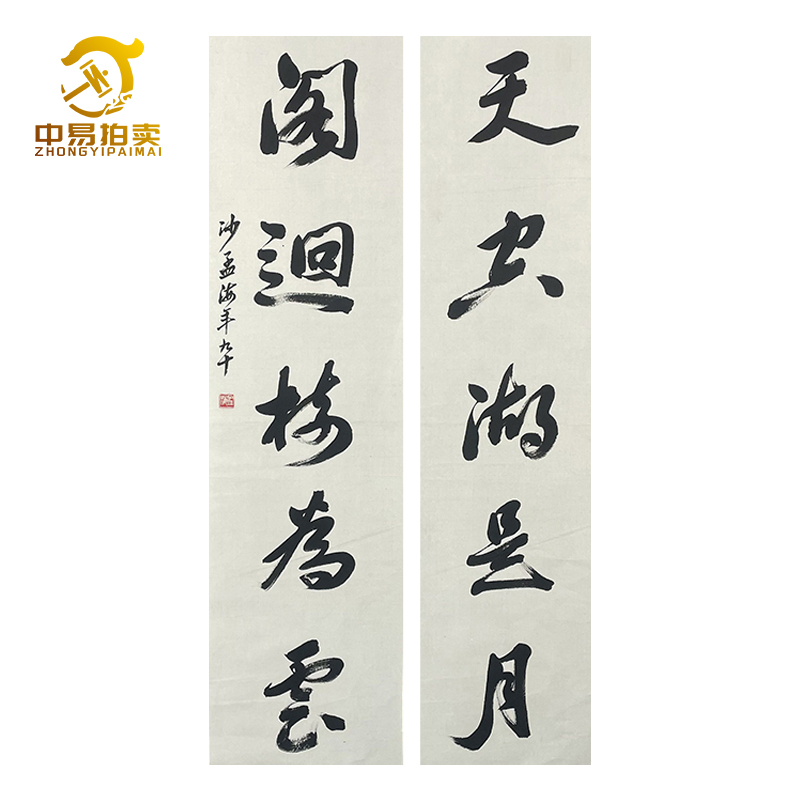 中易拍卖
ZHONGYIPAIMAI
天空湖是月
閣迴樹為雲
沙孟海年九十